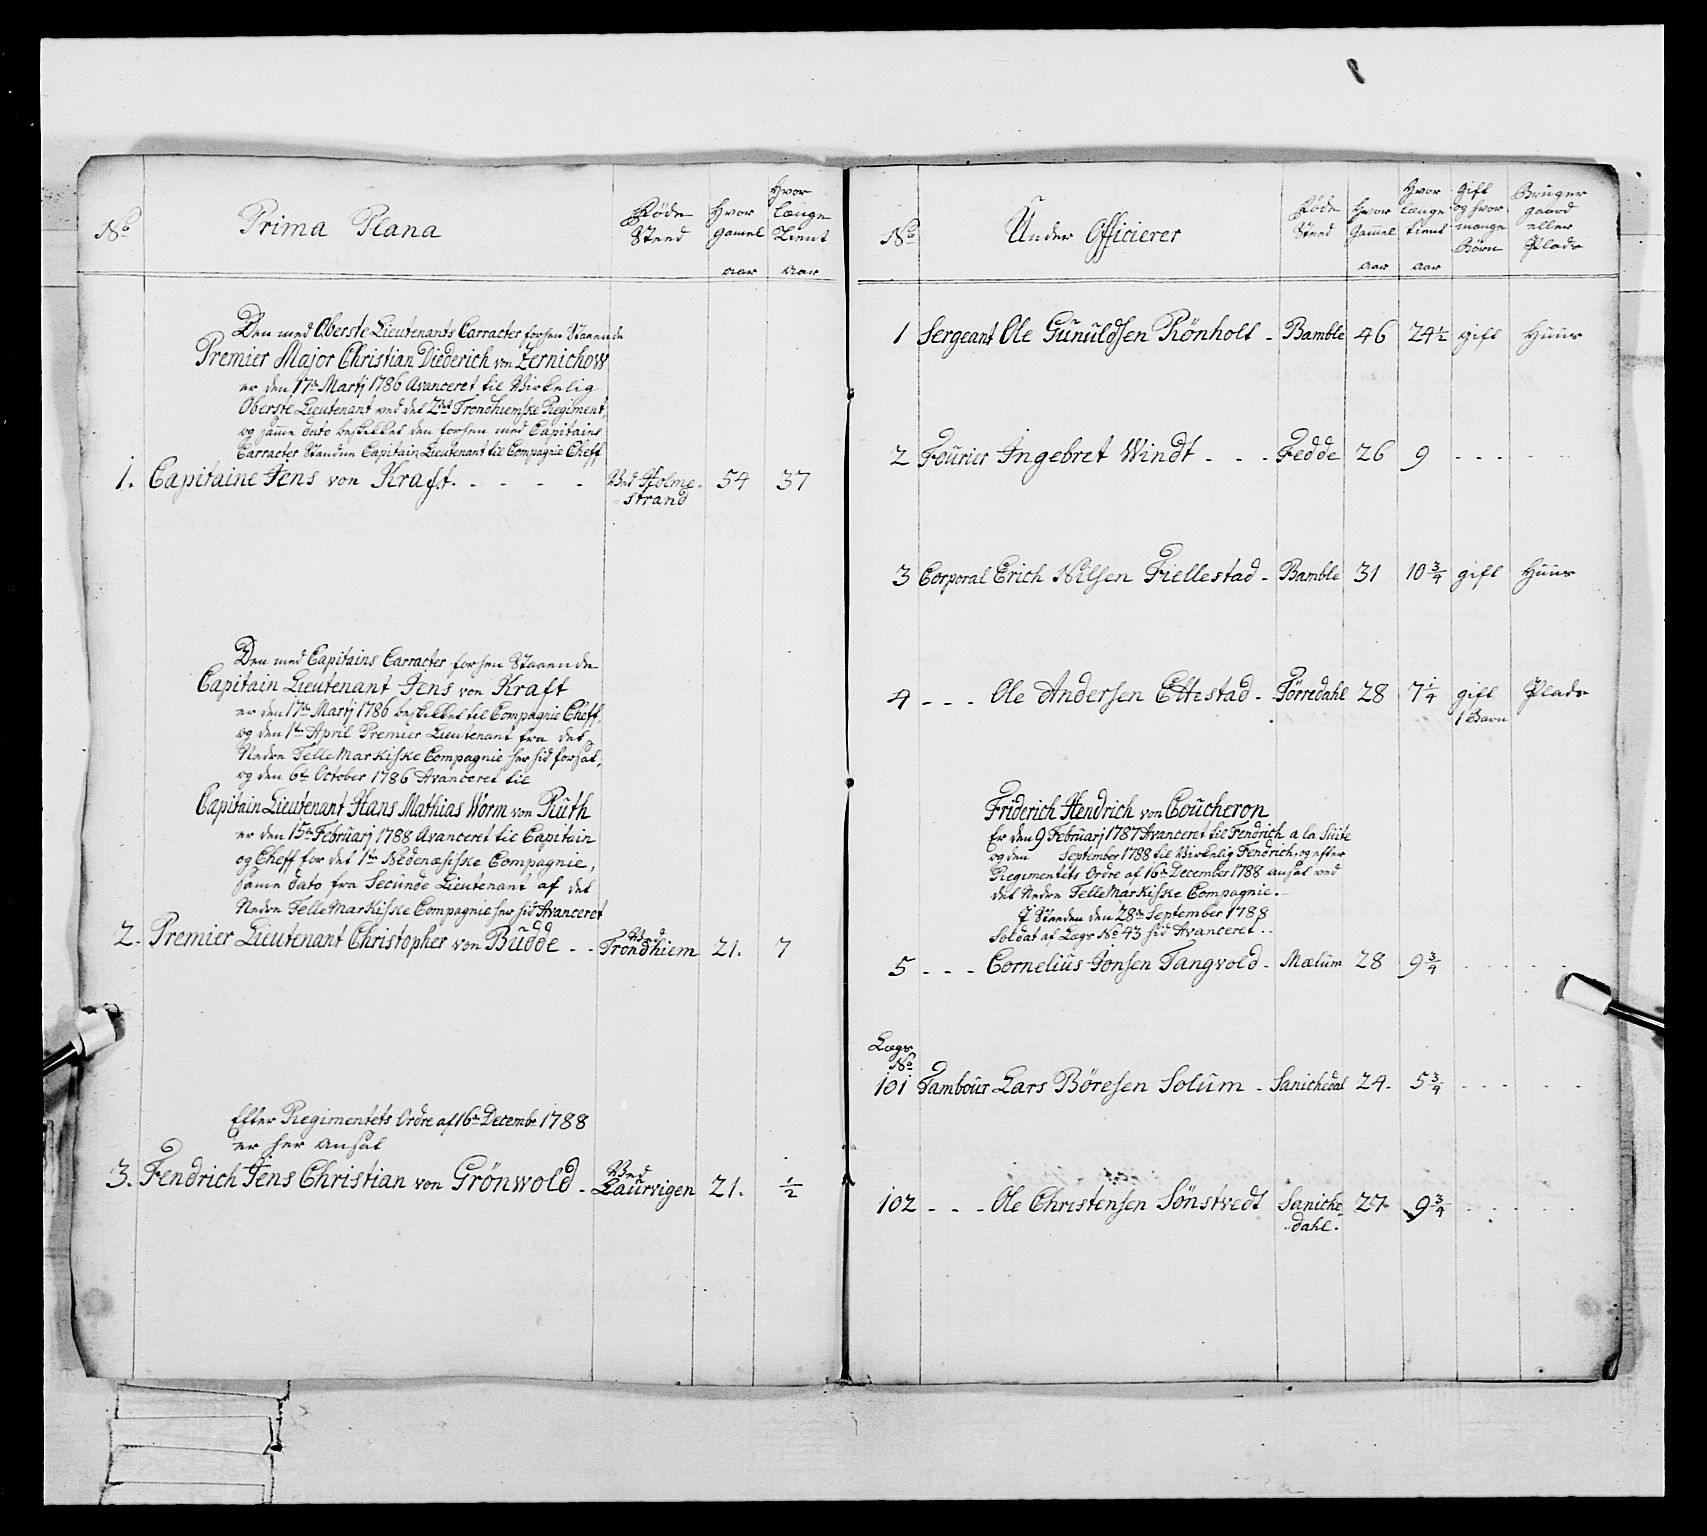 No
Prima Plana
Føde
Steed
Hvor
gamel
aar
Hvor
længe
Tient
aar
Den med Oberste Lieutenants Carracter forhen Staaende
Premier Major Christian Diederich von Zernichow
er den 17de Martj 1786 Avanceret til Virkelig
Oberste Lieutenant ved det 2det Trondhiemske Regiment,
og samme dato beskikket den forhen med Capitains
Carracter Standne Capitain Lieutenant til Compagnie Cheff
1. Capitaine Jens von Kraft. - - - - Ved Holme- 54 37
strand
Den med Capitains Carracter forhen Staaende
Capitain Lieutenant Jens von Kraft
er den 17de Martj 1786 beskikket til Compagnie Cheff,
og den 1te April Premier Lieutenant fra det
Nedre Tellemarkiske Compagnie her hid forsat,
og den 6te October 1786 Avanceret til
Capitain Lieutenant Hans Mathias Worm von Ruth
er den 15de Februarj 1788 Avanceret til Capitain
og Cheff for det 1te Nedenæsiske Compagnie,
same dato fra Secunde Lieutenant af det
Nedre Tellemarkiske Compagnie her hid Avanceret
2. Premier Lieutenant Christopher von Budde - - Ved Trondhiem 21. 7
Efter Regimentets Ordre af 16de Decembr 1788
er her ansat
3. Fendrich Jens Christian von Grönwold - Ved Laurvigen 21. ½
No
Under Officierer
Føde
Steed
Hvor
Gamel
aar
Hvor
længe
tient
aar
Gift
og hvor
mange
Børn
Bruger
gaard
eller
Plads
1 Sergeant Ole Gunuldsen Rönholt - Bamble 46 24½ gift Huus
2 Fourier Ingebret Windt - - - Fedde 26 9 - - - -
3 Corporal Erich Nilsen Fiellestad - Bamble 31 10¾ gift Huus
4 - - - Ole Andersen Ettestad - Törredahl 28 7¼ gift Plads
1 Barn
Friderich Hendrich von Coucheron
Er den 9 Februarj 1787 Avanceret til Fendrich a la Suite
og den September 1788 til Virkelig Fendrich, og efter
Regimentets Ordre af 16de December 1788 ansat ved
det Nedre Tellemarkiske Compagnie. -
I Steeden den 28de September 1788
Soldat af Lægs No 43 hid Avanceret . .
5 - - - Cornelius Jonsen Tangvold - Mælum 28 9¾ - - - -
Lægs
No
101 Tambour Lars Böresen Solum - Sanichedal 24 - 5¾ - - - - -
102 - - - Ole Christensen Sönstvedt Saniche- 27 9¾ - - - - -
dahl.